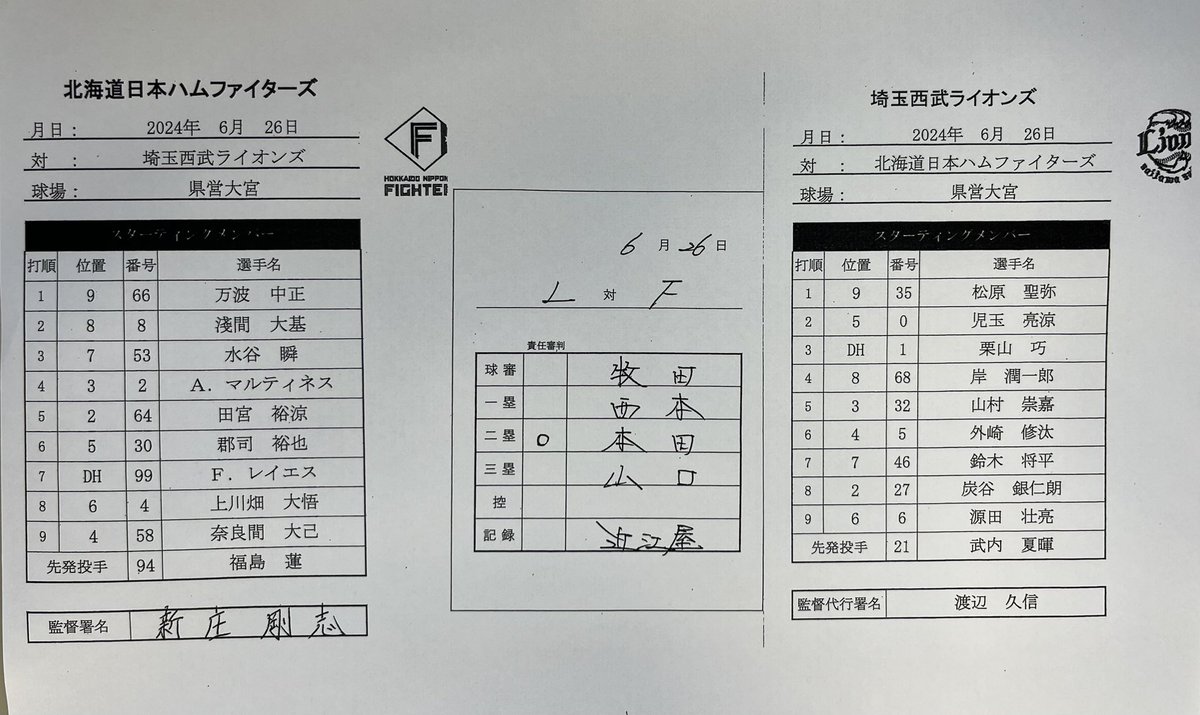 北海道日本ハムファイターズ
月日： 2024年 6月 26日
対 ： 埼玉西武ライオンズ
球場： 県営大宮
F
HOKKAIDO NIPPON
FIGHTE
スターティングメンバー
打順 位置 番号 選手名
1 9 66 万波 中正
2 8 8 淺間 大基
3 7 53 水谷 瞬
4 3 2 A．マルティネス
5 2 64 田宮 裕涼
6 5 30 郡司 裕也
7 DH 99 F．レイエス
8 6 4 上川畑 大悟
9 4 58 奈良間 大己
先発投手 94 福島 蓮
監督署名 新庄 剛志
6月26日
L 対 F
責任審判
球審 牧田
一塁 西本
二塁 ○ 本田
三塁 山口
控
記録 近江屋
埼玉西武ライオンズ
月日： 2024年 6月 26日
対 ： 北海道日本ハムファイターズ
球場： 県営大宮
Lion
スターティングメンバー
打順 位置 番号 選手名
1 9 35 松原 聖弥
2 5 0 児玉 亮涼
3 DH 1 栗山 巧
4 8 68 岸 潤一郎
5 3 32 山村 崇嘉
6 4 5 外崎 修汰
7 7 46 鈴木 将平
8 2 27 炭谷 銀仁朗
9 6 6 源田 壮亮
先発投手 21 武内 夏暉
監督代行署名 渡辺 久信